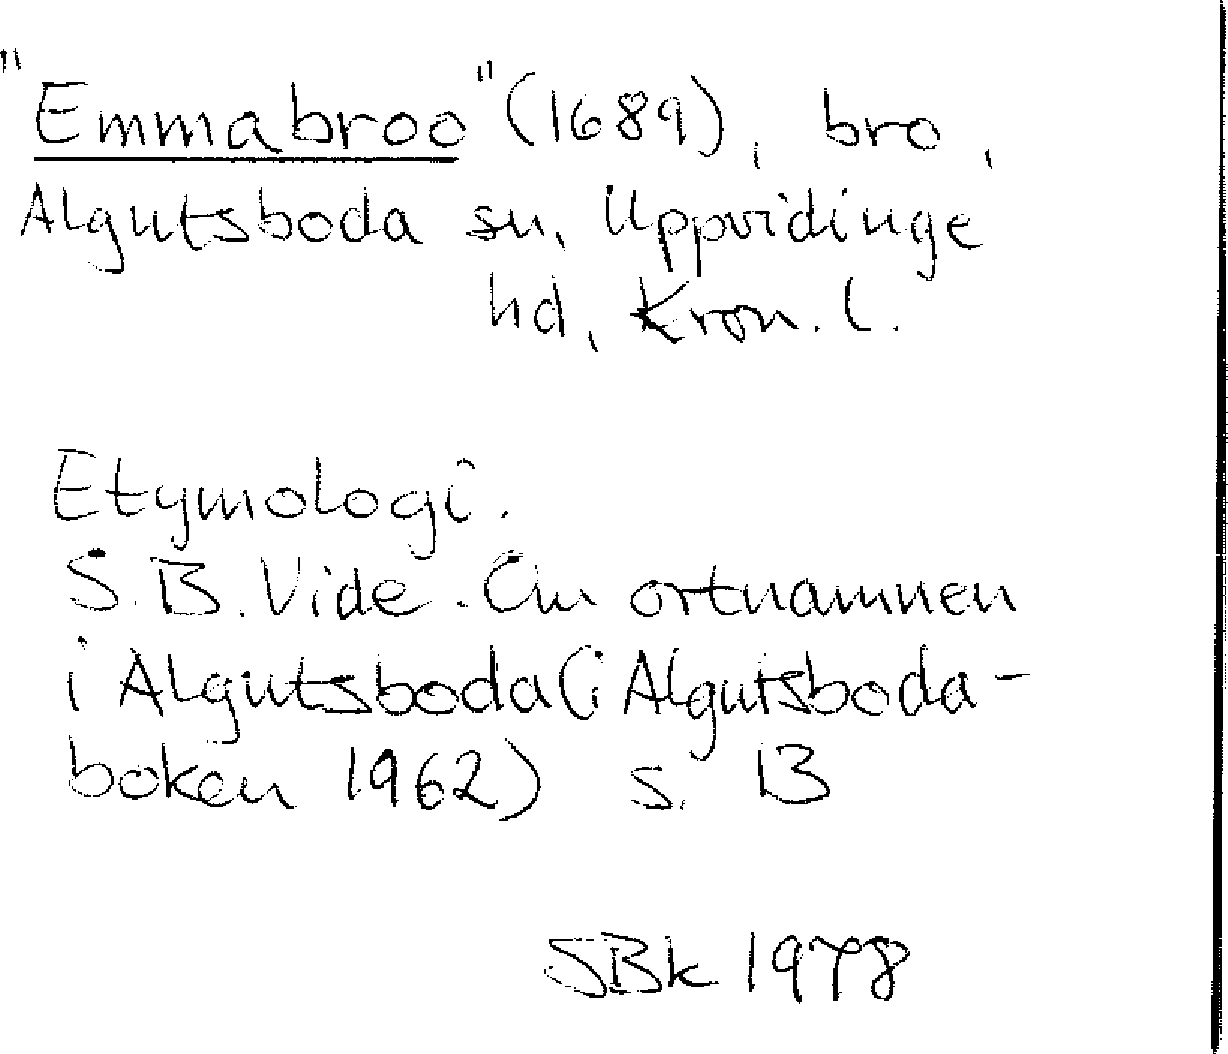 "Emmabroo" (1689), bro,
Algutsboda sn, Uppvidinge
hd, Kron. l.
Etymologi.
S.B. Vide. Om ortnamnen
i Algutsboda (i Algutsboda-
boken 1962) s. 13
SBk 1978